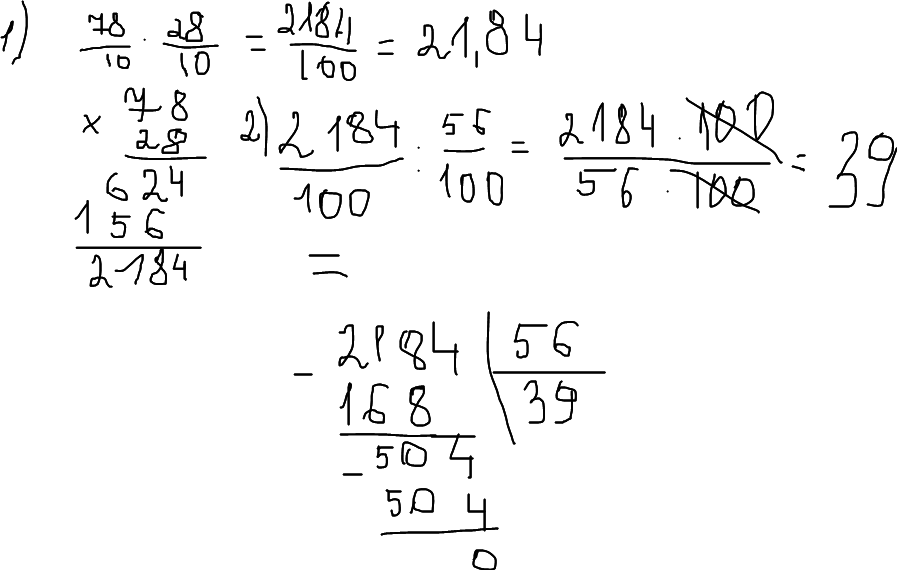 1) 78/10 · 28/10 = 2184/100 = 21,84
× 78
28
624
156
2184
2) 2184/100 · 56/100 = 2184 · 100 / 56 · 100 = 39
=
- 2184 | 56
168 | 39
- 504
504
0